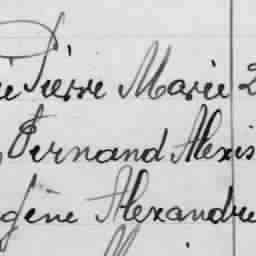 Pierre Marie
Fernand Alexis
gène Alexandre